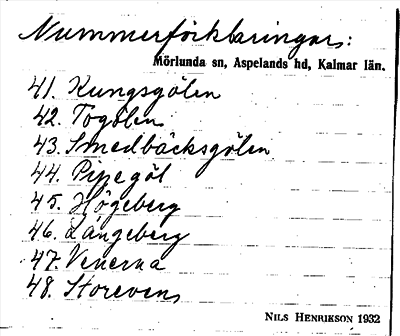 Nummerförklaringar:
Mörlunda sn, Aspelands hd, Kalmar län.
41. Kungsgölen
42. Togölen
43. Smedbäcksgölen
44. Pipegöl
45. Högeberg
46. Långeberg
47. Venerna
48. Storevens
NILS HENRIKSON 1932